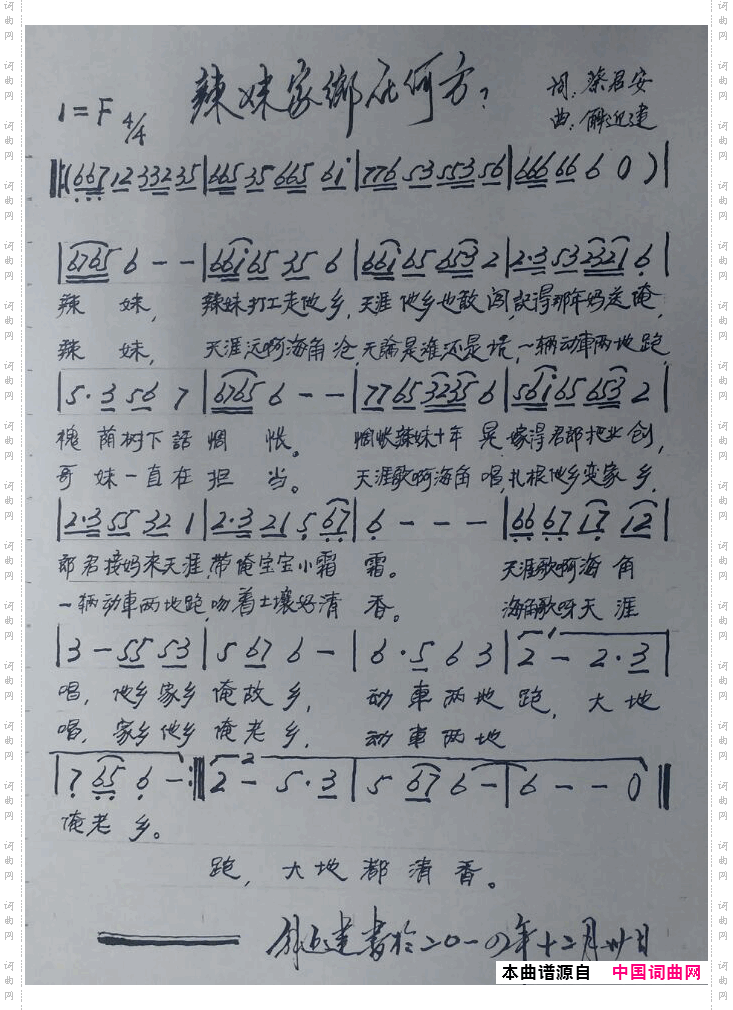 辣妹家鄉在何方?
1=F 4/4
词:蔡君安
曲:解近建
‖:(667 12 3323 5|665 35 665 61|776 53 553 56|666 66 6 0)|
|6765 6 - -|661 65 35 6|661 65 653 2|2·3 53 2321 6|
辣 妹, 辣妹打工走他乡,天涯他乡也敢闯,記得那年妈送俺,
辣 妹, 天涯远啊海角沧,天論是谁还是 一辆动車两地跑,
|5·3 56 7|6765 6 - -|77 65 3235 6|561 65 653 2|
槐荫树下話惆 怅。 惆怅辣妹十年晃,嫁得君郎把业创,
哥妹一直在担 当。 天涯歌啊海角唱,扎根他乡变家乡,
|2·3 55 32 1|2·3 21 5 67|6 - - -|66 67 17 12|
郎君接妈来天涯,带俺宝宝小霜 霜。 天涯歌啊海角
一辆动車两地跑,吻着土壤好清 香。 海角歌呀天涯
|3 - 55 53|5 67 6 -|6·5 6 3|2 - 2·3|
唱,他乡家乡俺故乡, 动車两地跑,大地
唱,家乡他乡俺老乡, 动車两地
|7 65 6 -:‖2 - 5·3|5 67 6 -|6 - - 0‖
俺老乡。
跑,大地都清香。
建書於二〇一四年十二月卅日
本曲谱源自 中国词曲网